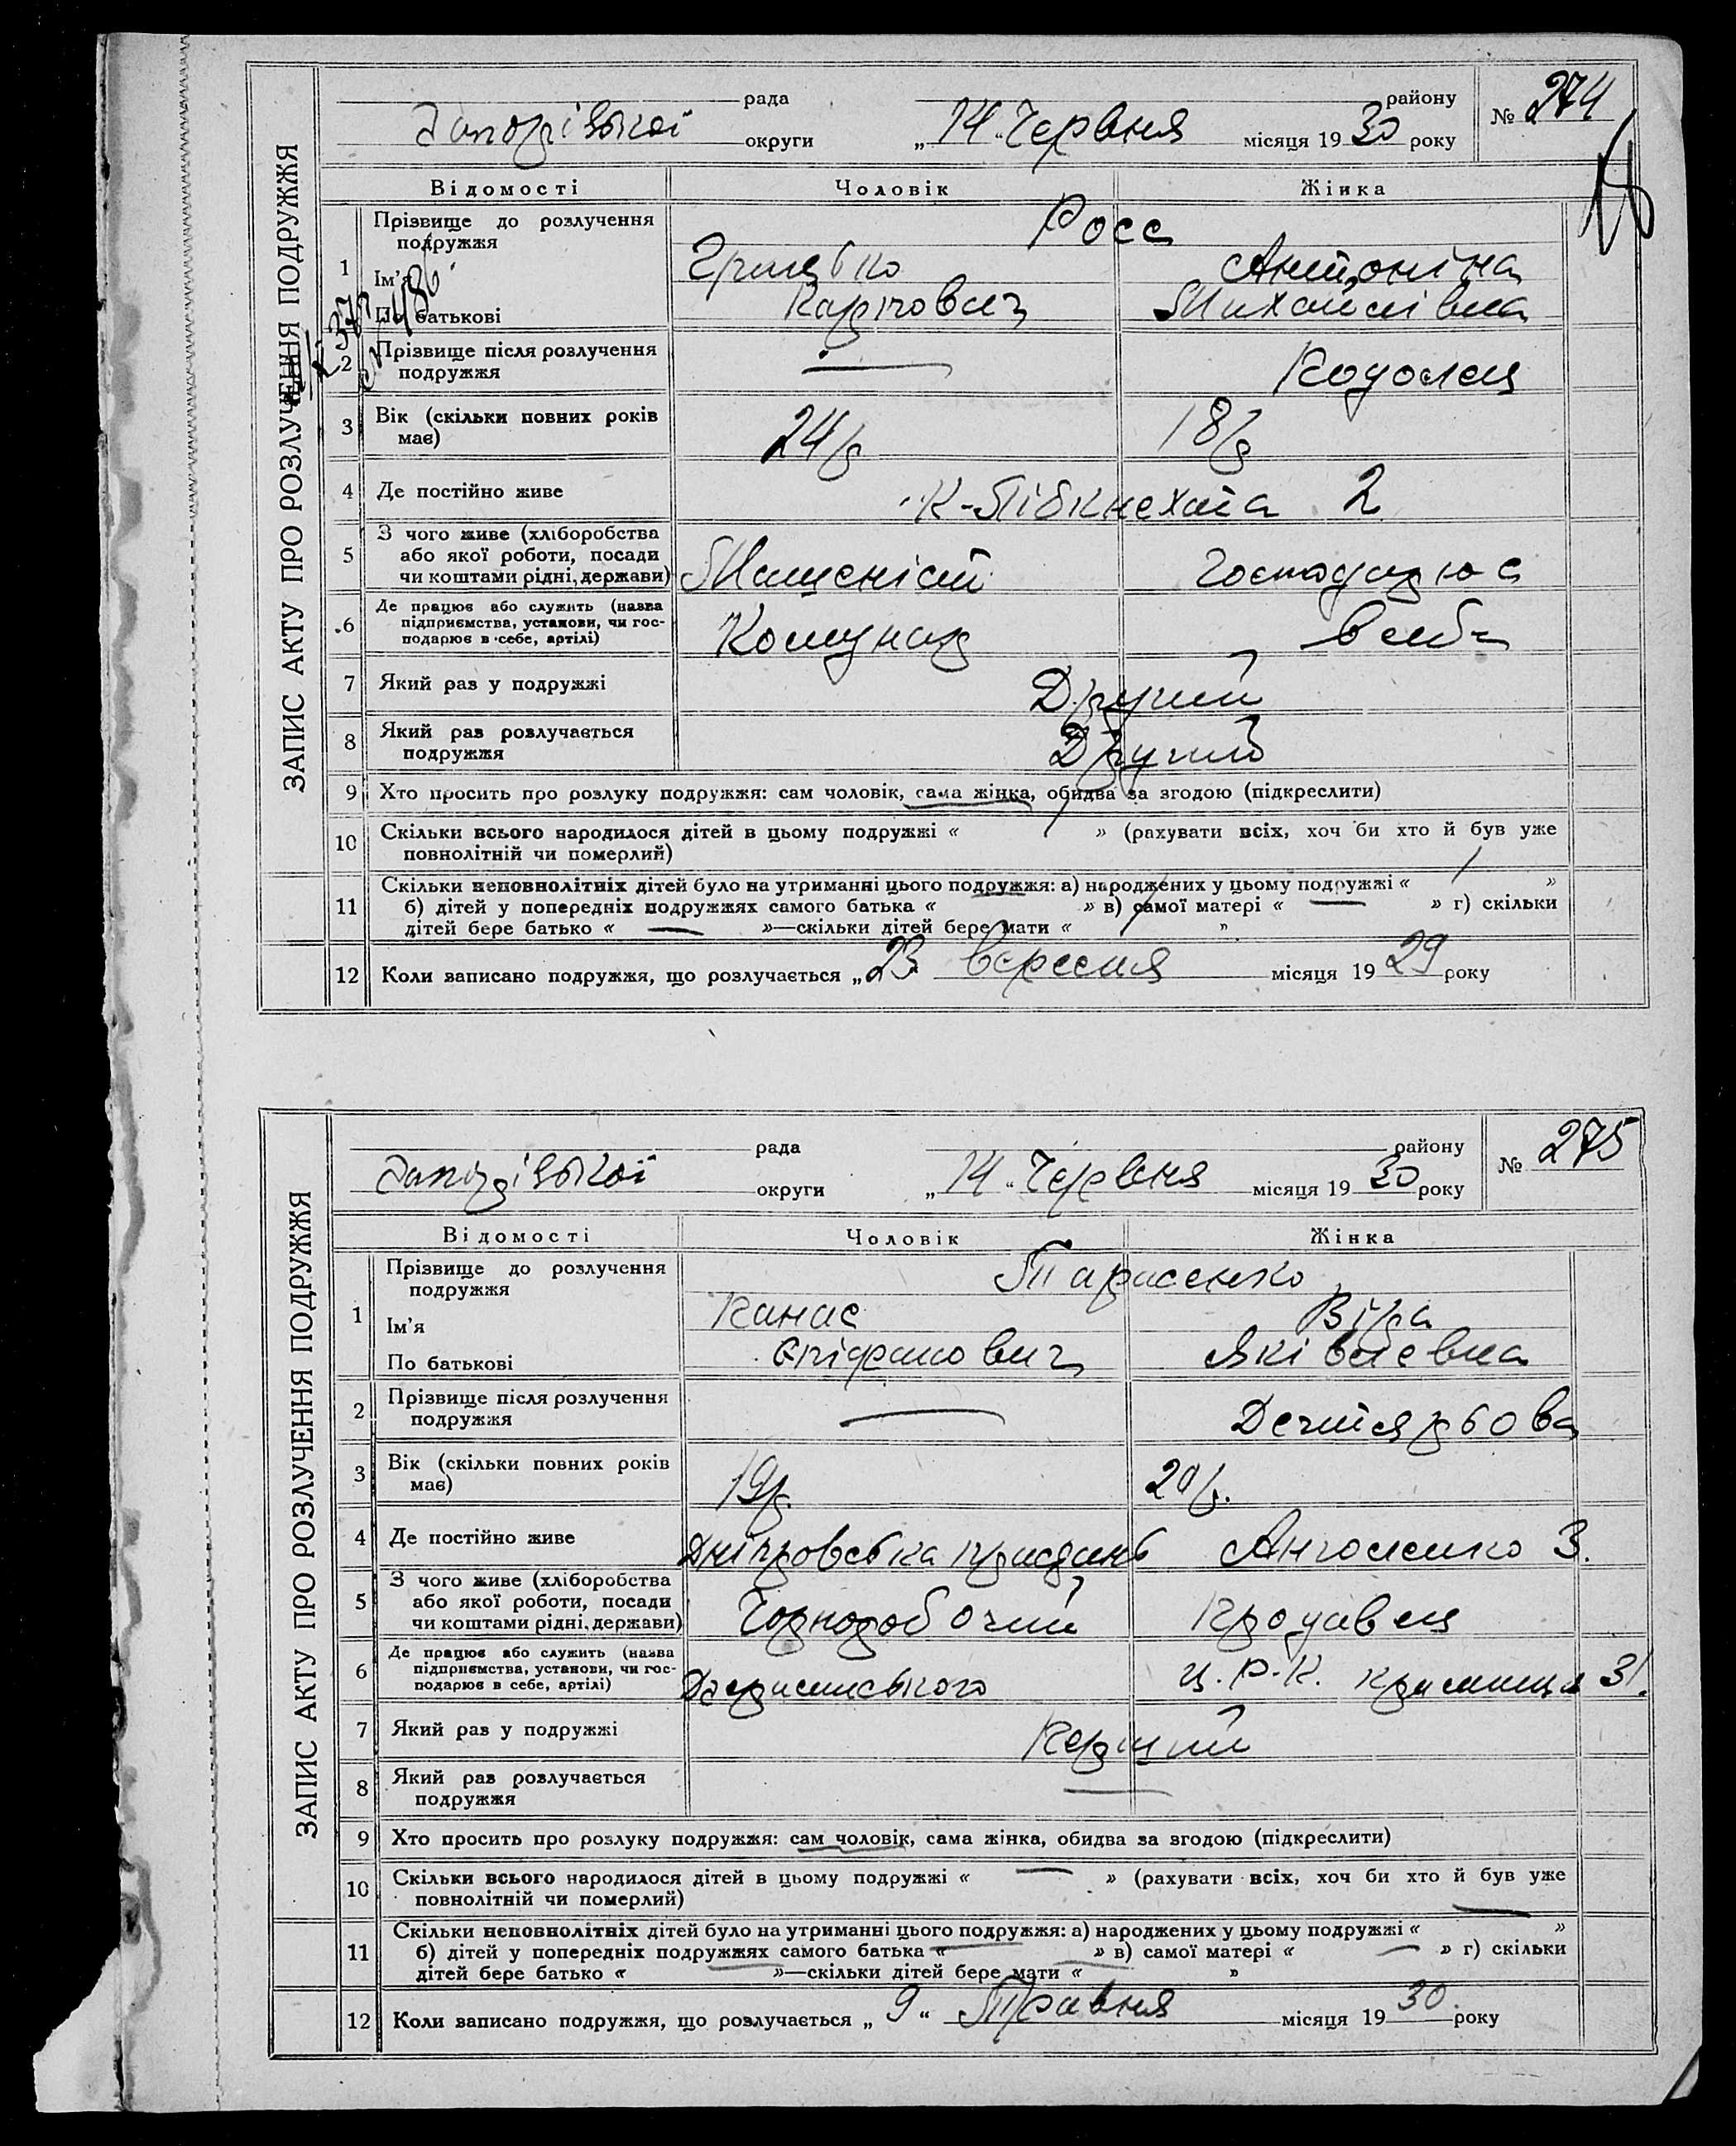 ЗАПИС АКТУ ПРО РОЗЛУЧЕННЯ ПОДРУЖЖЯ
рада району
Запорізької округи „14“ Червня місяця 1930 року
№ 274
Відомості Чоловік Жінка
1 Прізвище до розлучення подружжя Росс
Ім’я Грицько Антоніна
По батькові Карпович Михайлівна
2 Прізвище після розлучення подружжя — Кодолец
3 Вік (скільки повних років має) 24 р 18 р
4 Де постійно живе К-Лібкнехта 2
5 З чого живе (хліборобства або якої роботи, посади чи коштами рідні, держави) Машеніст Господарює
6 Де працює або служить (назва підприємства, установи, чи господарює в себе, артілі) Комунар в себе
7 Який раз у подружжі Другий
8 Який раз розлучається подружжя Другий
9 Хто просить про розлуку подружжя: сам чоловік, сама жінка, обидва за згодою (підкреслити)
10 Скільки всього народилося дітей в цьому подружжі « 1 » (рахувати всіх, хоч би хто й був уже
повнолітній чи померлий)
11 Скільки неповнолітніх дітей було на утриманні цього подружжя: а) народжених у цьому подружжі « 1 »
б) дітей у попередніх подружжях самого батька « — » в) самої матері « — » г) скільки
дітей бере батько « — »—скільки дітей бере мати « 1 »
12 Коли записано подружжя, що розлучається „23 вересня місяця 1929 року
ЗАПИС АКТУ ПРО РОЗЛУЧЕННЯ ПОДРУЖЖЯ
рада району
Запорізької округи „14“ Червня місяця 1930 року
№ 275
Відомості Чоловік Жінка
1 Прізвище до розлучення подружжя Тарасенко
Ім’я Панас Віра
По батькові Єпіфанович Яківлевна
2 Прізвище після розлучення подружжя — Дегтярьова
3 Вік (скільки повних років має) 19р. 20р.
4 Де постійно живе Дніпровська пристань Анголенко 3.
5 З чого живе (хліборобства або якої роботи, посади чи коштами рідні, держави) Чорноробочий Продавец
6 Де працює або служить (назва підприємства, установи, чи господарює в себе, артілі) Дзержинського Ц.Р.К. крамниця 31.
7 Який раз у подружжі Перший
8 Який раз розлучається подружжя —
9 Хто просить про розлуку подружжя: сам чоловік, сама жінка, обидва за згодою (підкреслити)
10 Скільки всього народилося дітей в цьому подружжі « — » (рахувати всіх, хоч би хто й був уже
повнолітній чи померлий)
11 Скільки неповнолітніх дітей було на утриманні цього подружжя: а) народжених у цьому подружжі « — »
б) дітей у попередніх подружжях самого батька « — » в) самої матері « — » г) скільки
дітей бере батько « — »—скільки дітей бере мати « — »
12 Коли записано подружжя, що розлучається „ 9 “ Травня місяця 1930. року